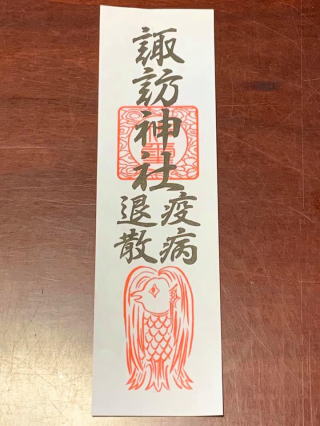 諏訪神社
疫病
退散